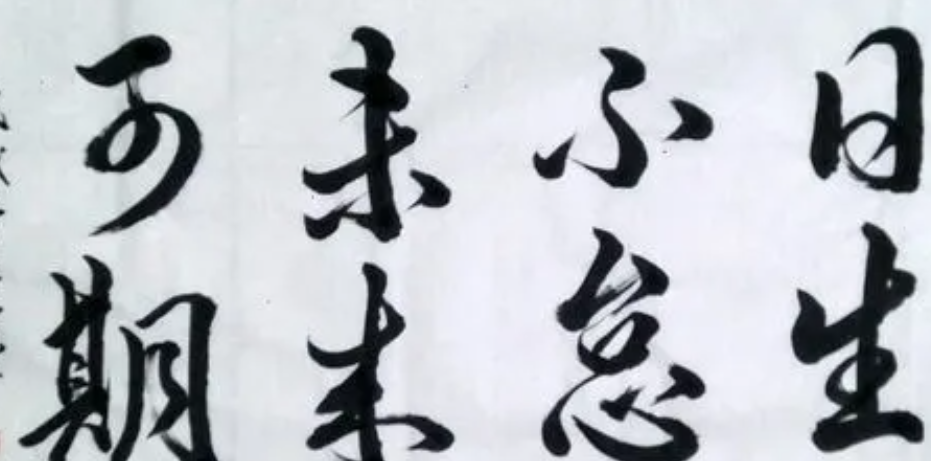 日生
不怠
未来
可期